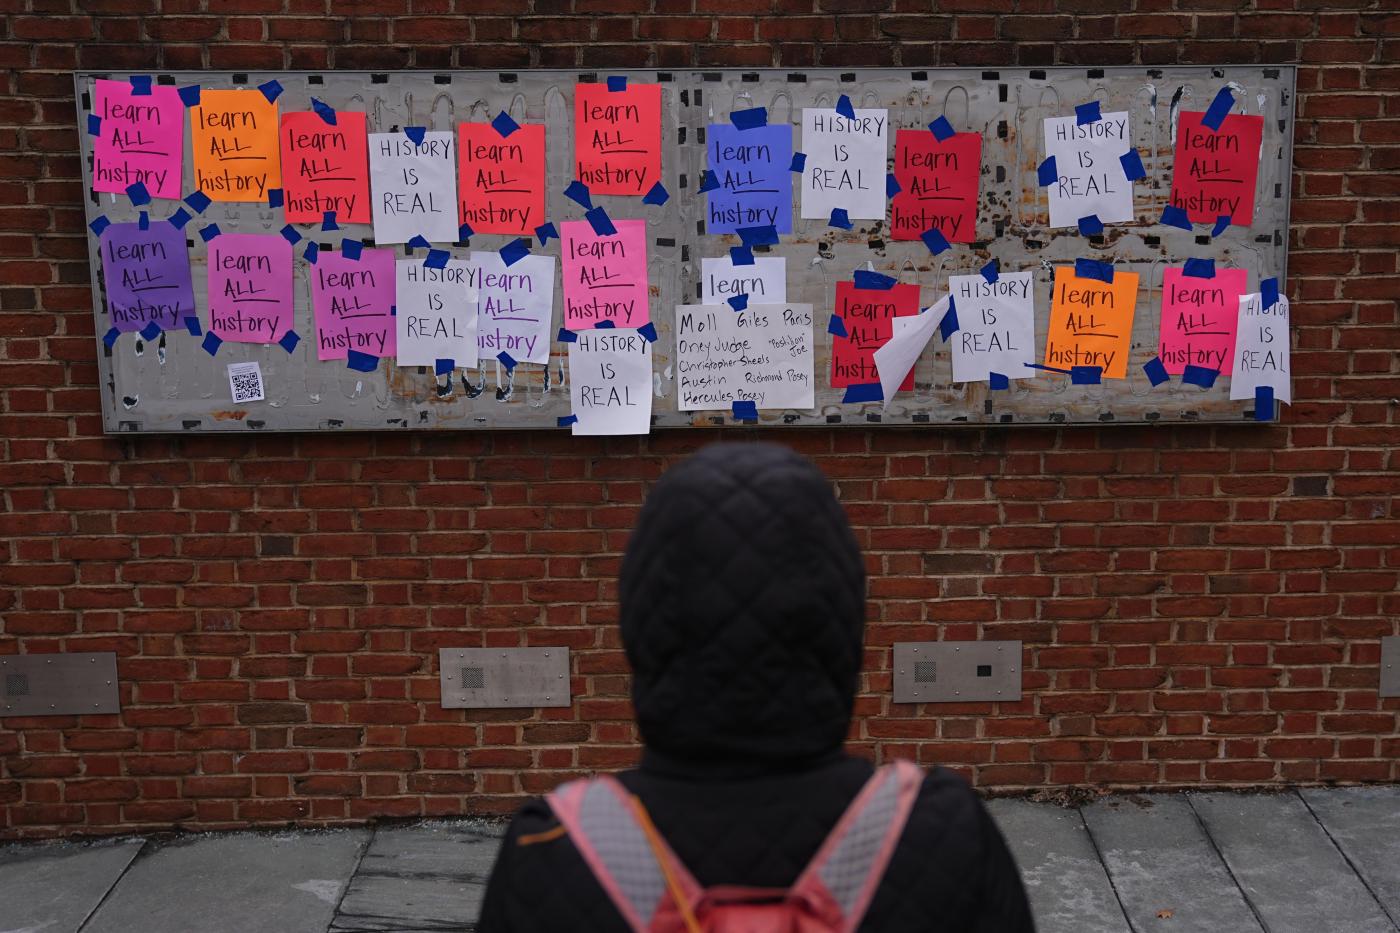 learn
ALL
history
learn
ALL
history
learn
ALL
history
HISTORY
IS
REAL
learn
ALL
history
learn
ALL
history
learn
ALL
history
HISTORY
IS
REAL
learn
ALL
history
HISTORY
IS
REAL
learn
ALL
history
learn
ALL
history
learn
ALL
history
learn
ALL
history
HISTORY
IS
REAL
learn
ALL
istory
learn
ALL
history
HISTORY
IS
REAL
learn
Moll Giles Paris
Oney Judge "Postilion" Joe
Christopher Sheels
Austin Richmond Posey
Hercules Posey
learn
ALL
histo
HISTORY
IS
REAL
learn
ALL
history
learn
ALL
history
HISTO
IS
REAL